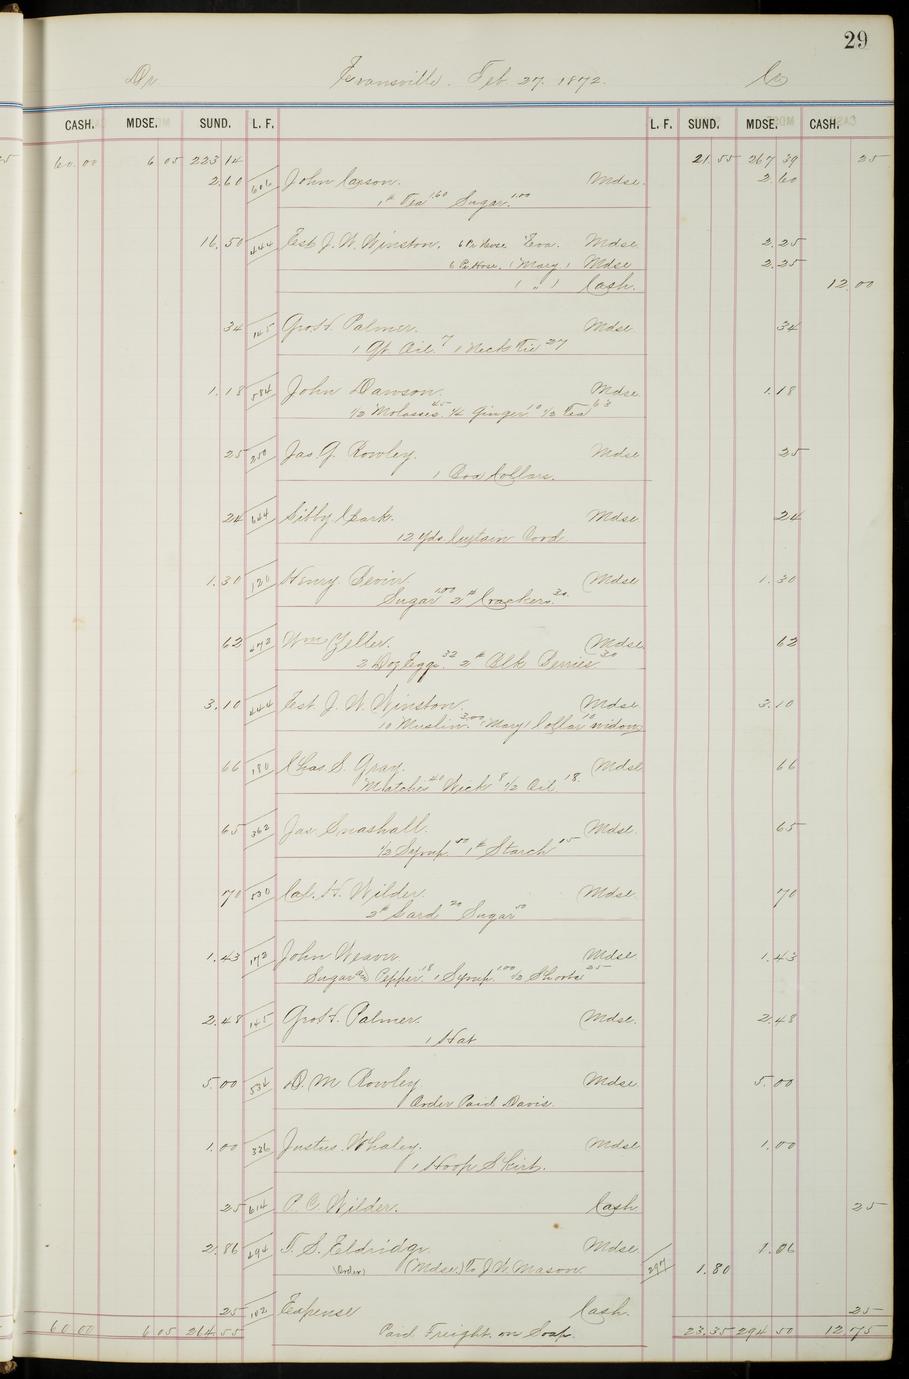 29
Dr Evansville. Feb. 27. 1872. Cr
CASH. MDSE. SUND. L. F. L. F. SUND. MDSE. CASH.
60.00 6 05 223 14 21.55 267 39 25
2.60 606 John Capson. Mdse. 2.60
1# Tea 1.60 Sugar. 1.00
16.50 444 Est J. W. Winston. 6 Pr Hose. Eva. Mdse 2.25
6 Pr Hose. (Mary) Mdse 2.25
( " ) Cash. 12.00
34 145 Geo. H. Palmer. Mdse 34
1 Qt Oil. 7 1 Neck Tie 27
1.18 584 John Dawson. Mdse 1.18
1/2 Molasses. 45 1/4 Ginger 10 1/2 Tea 63
25 250 Jas. G. Rowley. Mdse 25
1 Box Collars.
24 644 Libby Clark. Mdse 24
12 Yds Curtain Cord
1.30 120 Henry Devin. Mdse 1.30
Sugar 1.00 2# Crackers. 30
62 472 Wm Zeller. Mdse 62
2 Doz Eggs. 32 2# Blk Berries 30
3.10 444 Est. J. W. Winston. Mdse 3.10
10 Muslin. 3.00 "Mary" 1 Collar 10 widow
66 180 Chas. S. Gray. Mdse 66
Matches 40 Wick 8 1/2 Oil 18
65 362 Jas Snashall. Mdse. 65
1/2 Syrup 50 1# Starch 15
70 530 Cal. H. Wilder. Mdse 70
2# Lard 20 Sugar 50
1.43 172 John Weaver Mdse 1.43
Sugar Pepper 18 1 Syrup. 1.00 1/2 Shorts 25
2.48 145 Geo. H. Palmer. Mdse. 2.48
1 Hat
5.00 534 D. M Rowley Mdse 5.00
Order Paid Davis.
1.00 326 Justus. Whaley. Mdse 1.00
1 Hoop Skirt.
25 614 P. C. Wilder. Cash 25
2.86 494 T. S. Eldridge Mdse 1.06
(Order) (Mdse.) To J W Mason 297 1.80
25 102 Expense Cash. 25
60 00 6 05 264.55 Paid Freight. on Soap. 23.35 294 50 12.75